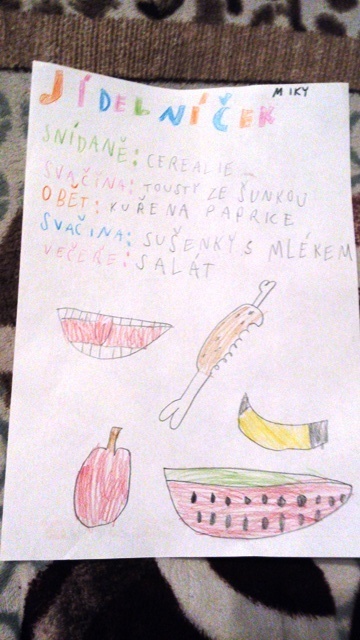 MIKY
JÍDELNÍČEK
SNÍDANĚ: CEREALIE
SVAČINA: TOUSTY ZE ŠUNKOU
OBĚT: KUŘE NA PAPRICE
SVAČINA: SUŠENKY S MLÉKEM
VEČEŘE: SALÁT